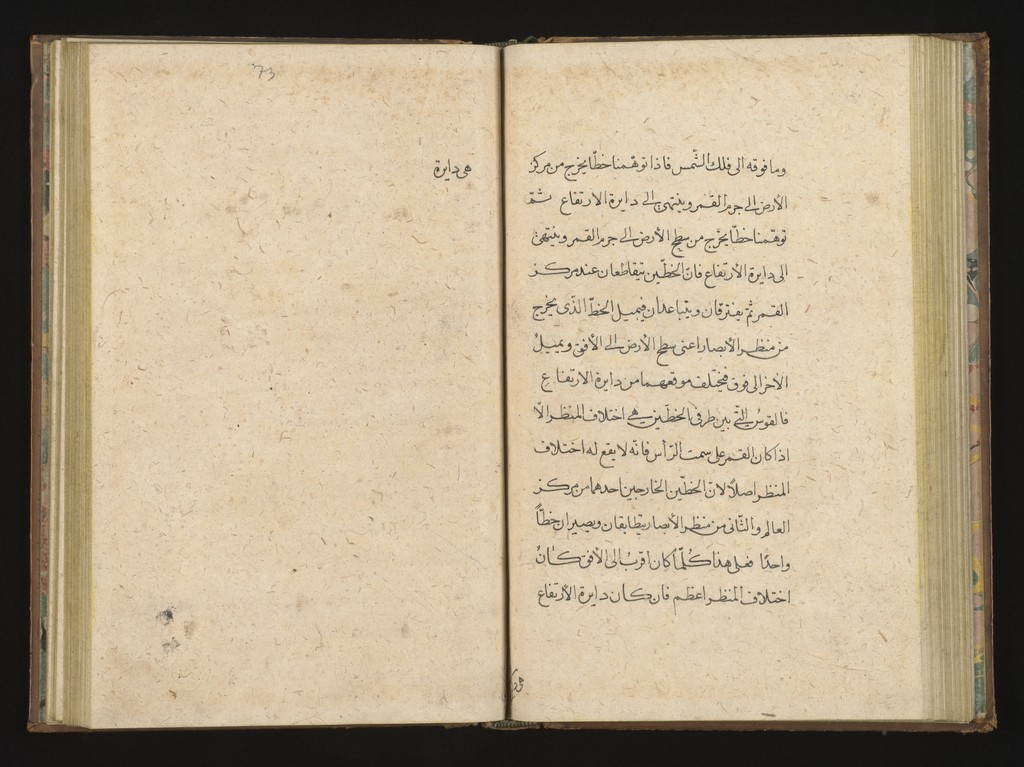 وما فوقه الى فلك الشّمس فاذا توهّمنا خطّا يخرج من مركز
الأرض الى جرم القمر وينتهى الى دايرة الارتفاع ثمّ
توهّمنا خطّا يخرج من سطح الأرض الى جرم القمر وينتهى
الى دايرة الأرتفاع فانّ الخطّين يتقاطعان عند مركز
القمر ثمّ يفترقان ويتباعدان فيميل الخطّ الّذى يخرج
من منظر الأبصار اعنى سطح الأرض الى الأفق ويميلُ
الأخر الى فوق فيختلف موقعهما من دايرة الارتفاع
فالقوس الّتى بين طرفى الخطّين هى اختلاف المنظر الّا
اذا كان القمر على سمت الرّأس فانّه لا يقع له اختلاف
المنظر اصلاً لانّ الخطّين الخارجين احدهما من مركز
العالم والثّانى من منظر الأبصار يتطابقان ويصيران خطّاً
واحدًا فعلى هذا كُلّما كان اقرب الى الأفق كانُ
اختلاف المنظر اعظم فان كان دايرة الأرتفاع
73
هى دايرة